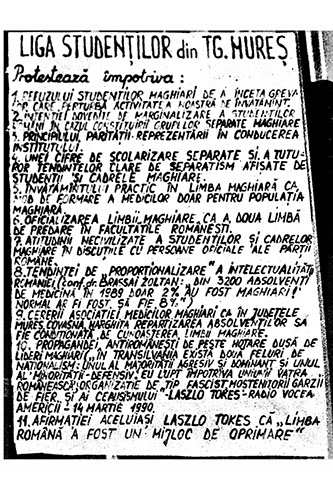 LIGA STUDENȚILOR din TG. MUREȘ
Protestează împotriva:
1. REFUZULUI STUDENȚILOR MAGHIARI DE A ÎNCETA GREVA
CARE PERTURBĂ ACTIVITATEA NOASTRĂ DE ÎNVĂȚĂMÎNT.
2. INTENȚIEI DOVEDITE DE MARGINALIZARE A STUDENȚILOR
ROMÂNI ÎN CAZUL CONSTITUIRII GRUPELOR SEPARATE MAGHIARE
3. PRINCIPIULUI PARITĂȚII REPREZENTĂRII ÎN CONDUCEREA
INSTITUTULUI.
4. UNEI CIFRE DE ȘCOLARIZARE SEPARATE ȘI A TUTU-
ROR TENDINȚELOR CLARE DE SEPARATISM AFIȘATE DE
STUDENȚI ȘI CADRELE MAGHIARE.
5. ÎNVĂȚĂMÎNTULUI PRACTIC ÎN LIMBA MAGHIARĂ CA
MOD DE FORMARE A MEDICILOR DOAR PENTRU POPULAȚIA
MAGHIARĂ
6. OFICIALIZAREA LIMBII MAGHIARE CA A DOUA LIMBĂ
DE PREDARE ÎN FACULTĂȚILE ROMÂNEȘTI.
7. ATITUDINII NECIVILIZATE A STUDENȚILOR ȘI CADRELOR
MAGHIARE ÎN DISCUȚIILE CU PERSOANE OFICIALE ALE PĂRȚII
ROMÂNE.
8. TENDINȚEI DE "PROPORȚIONALIZARE" A INTELECTUALITĂȚII
ROMÂNIEI (conf. dr. BRASSAI ZOLTAN: „DIN 3200 ABSOLVENȚI
DE MEDICINĂ ÎN 1989 DOAR 2% AU FOST MAGHIARI!
NORMAL AR FI FOST SĂ FIE 8%")
9. CERERII ASOCIAȚIEI MEDICILOR MAGHIARI CA ÎN JUDEȚELE
MUREȘ, COVASNA, HARGHITA REPARTIZAREA ABSOLVENȚILOR SĂ
FIE CONDIȚIONATĂ DE CUNOAȘTEREA LIMBII MAGHIARE.
10. PROPAGANDEI ANTIROMÂNEȘTI DE PESTE HOTARE DUSĂ DE
LIDERI MAGHIARI („ÎN TRANSILVANIA EXISTĂ DOUĂ FELURI DE
NAȚIONALISM: UNUL AL MAJORITĂȚII AGRESIV ȘI DOMINANT ȘI UNUL
AL MINORITĂȚII-DEFENSIV; EU LUPT ÎMPOTRIVA UNIUNII VATRA
ROMÂNEASCĂ; ORGANIZAȚIE DE TIP FASCIST MOȘTENITORII GĂRZII
DE FIER ȘI AI CEAUȘISMULUI" - LASZLO TŐKES - RADIO VOCEA
AMERICII - 14 MARTIE 1990.
11. AFIRMAȚIEI ACELUIAȘI LASZLO TŐKES CĂ „LIMBA
ROMÂNĂ A FOST UN MIJLOC DE OPRIMARE"